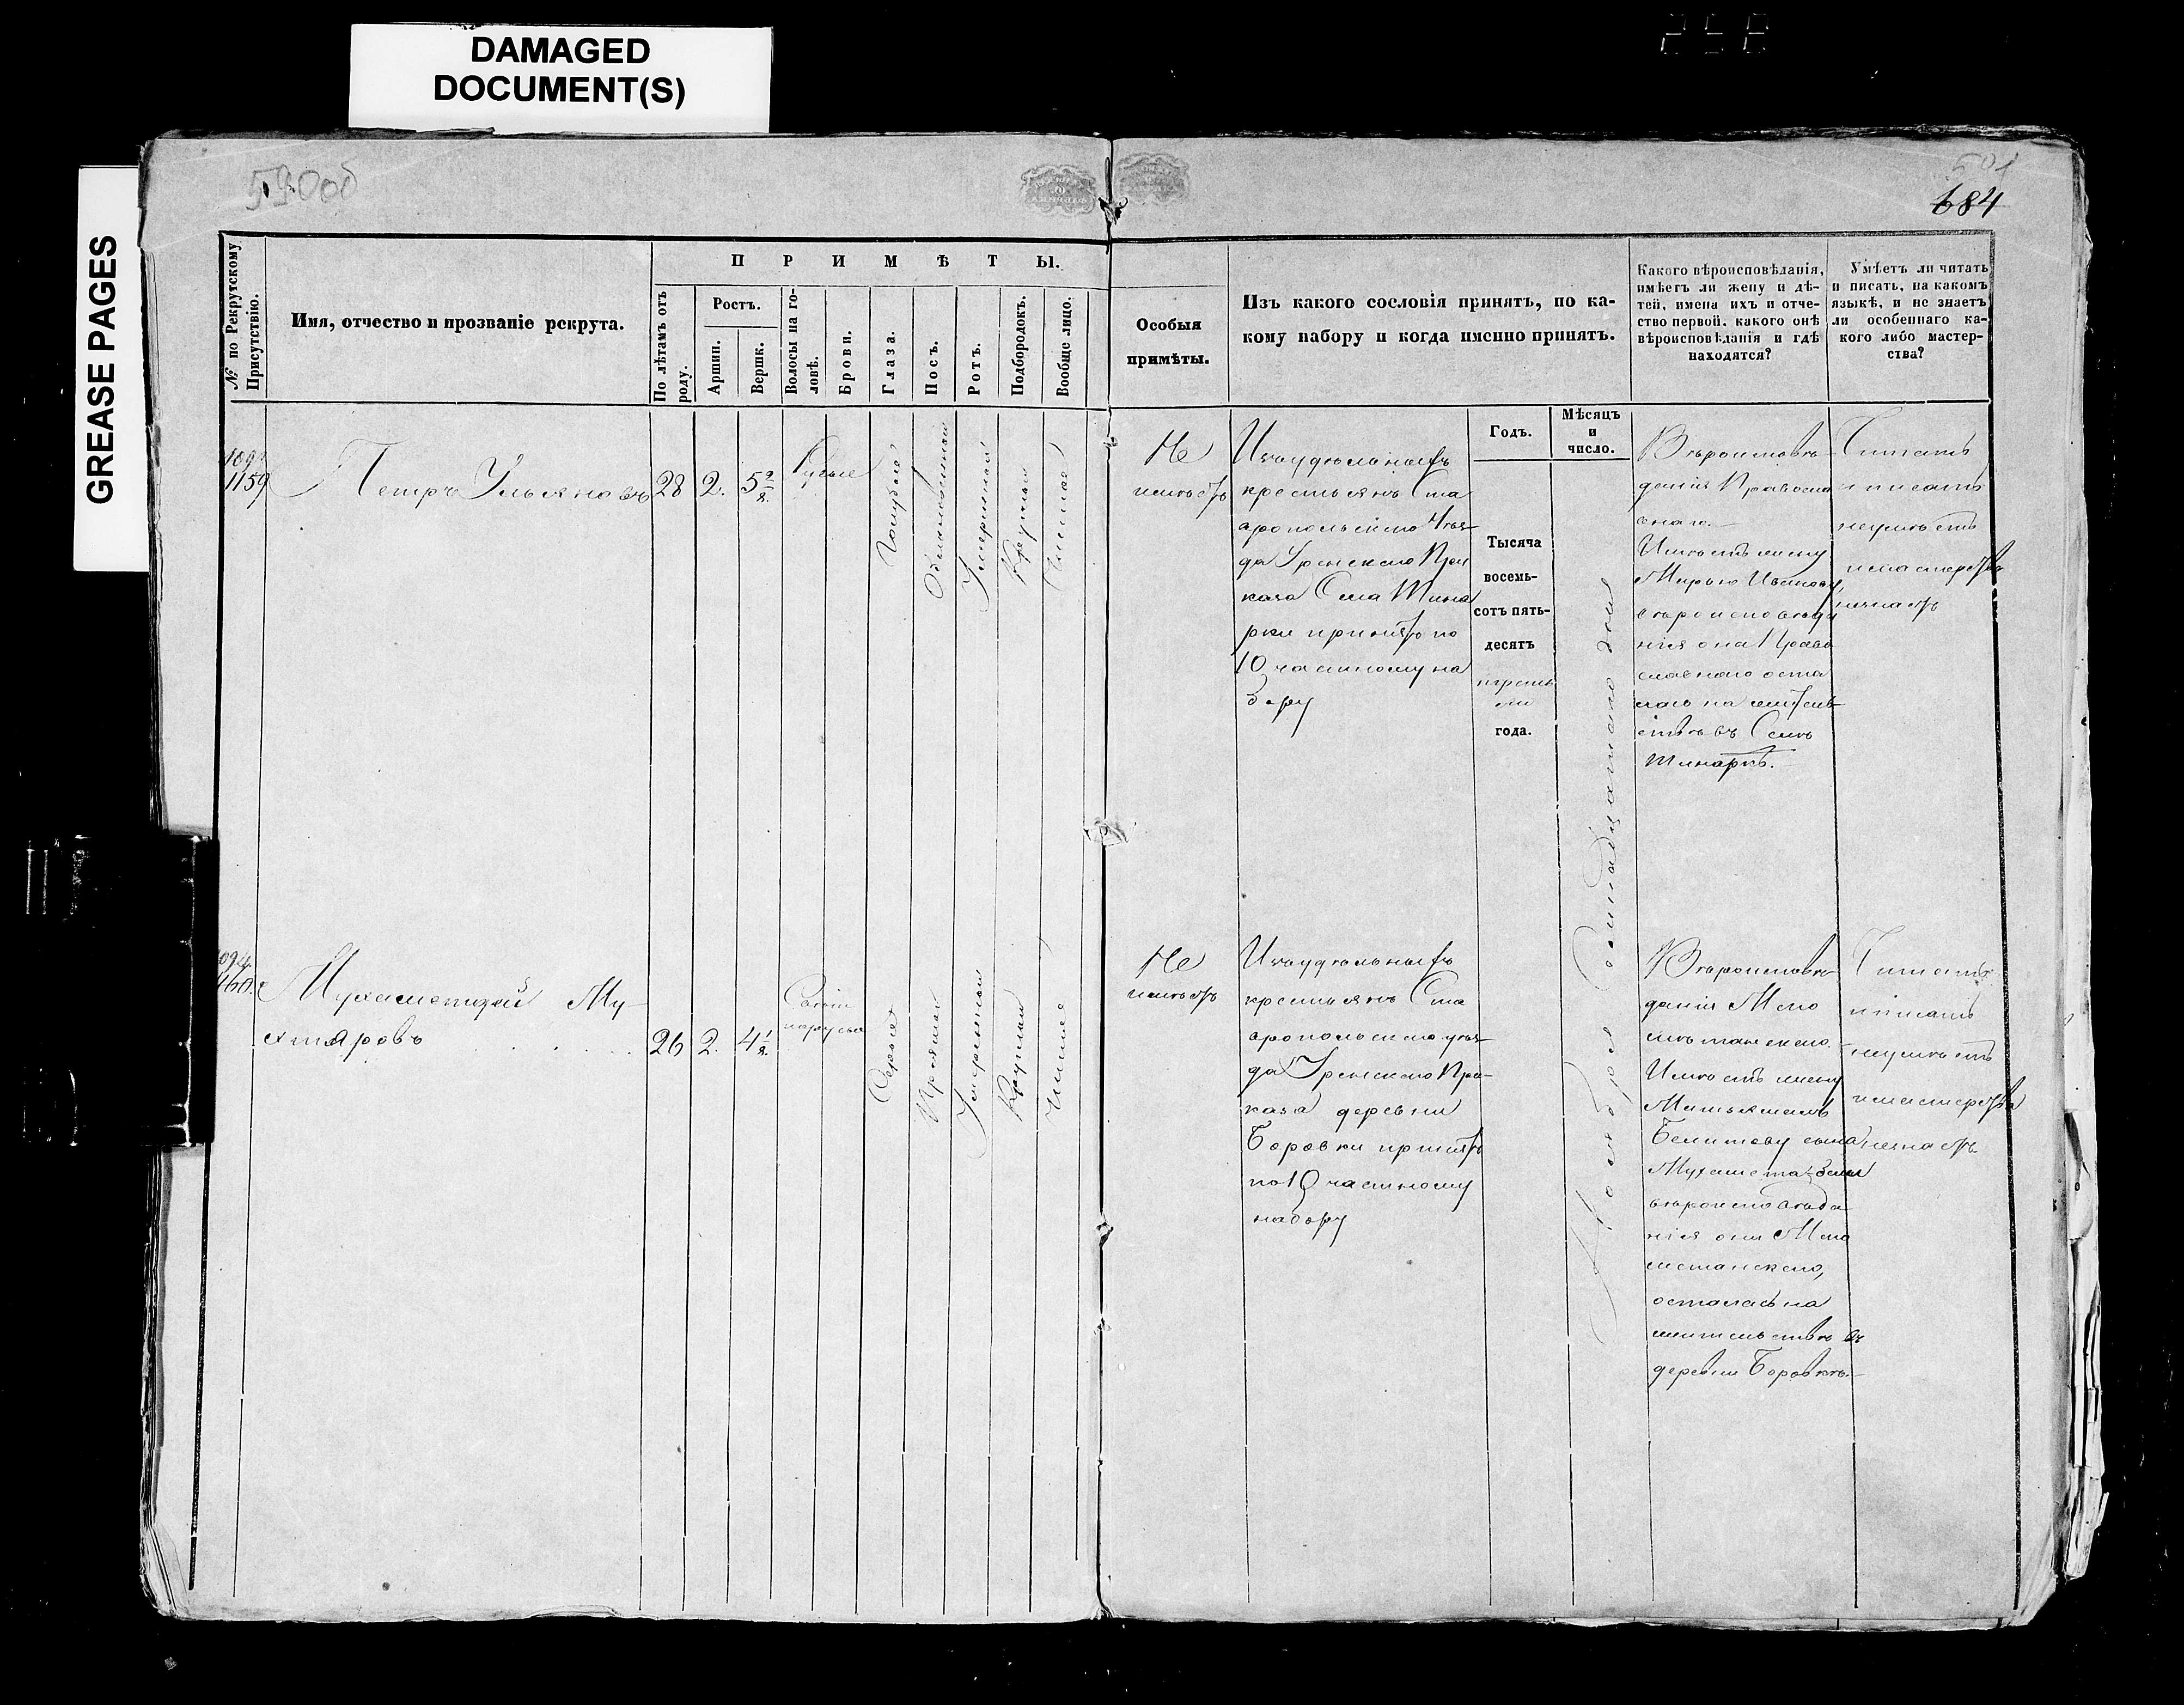 DAMAGED
DOCUMENT(S)
GREASE PAGES
590об
501
684
№ по Рекрутскому
Присутствію.
Имя, отчество и прозваніе рекрута.
ПРИМѢТЫ.
По лѣтамъ отъ
роду.
Ростъ.
Аршин.
Вершк.
Волосы на го-
ловѣ.
Брови.
Глаза.
Носъ.
Ротъ.
Подбородокъ.
Вообще лицо.
Особыя
примѣты.
Изъ какого сословія принятъ, по ка-
кому набору и когда именно принятъ.
Какого вѣроисповѣданія,
имѣетъ ли жену и дѣ-
тей, имена ихъ и отче-
ство первой, какого онѣ
вѣроисповѣданія и гдѣ
находятся?
Умѣетъ ли читать
и писать, на какомъ
языкѣ, и не знаетъ
ли особеннаго ка-
кого либо мастер-
ства?
Годъ.
Мѣсяцъ
и
число.
1159
Петръ Ульяновъ
28
2.
5 2/8
Русые
Голубые
Обыкновенный
Умеренный
Круглый
Чистое
Не
имѣетъ
Изъ удѣльныхъ
крестьянъ Ста
вропольскаго Уѣз-
да
Приказа Села
принятъ по
10 частному на
бору
Тысяча
восемь-
сотъ пять-
десятъ
третьяго
года.
Ноября двѣнадцатаго дня
Вѣроисповѣ-
данія Православ
наго.
Имѣетъ жену
Марью Иванову
вѣроисповѣда
нія она Право
славнаго оста
лась на житель
ствѣ въ Селѣ
Читать
и писать
неумѣетъ
и мастерства
незнаетъ
Мухаметзей Му-
хтаровъ
26
2.
4 1/8
Сѣрые
Прямой
Умеренный
Круглый
Чистое
Не
имѣетъ
Изъ удѣльныхъ
крестьянъ Ста
вропольскаго уѣз-
да Приказа деревни
Боровки принятъ
по 10 частному
набору
Вѣроисповѣ-
данія Маго
метанскаго.
Имѣетъ жену
сына
вѣроисповѣда
нія они Маго
метанскаго,
осталась на
жительствѣ въ
деревни Боровкѣ.
Читать
и писать
неумѣетъ
и мастерства
незнаетъ